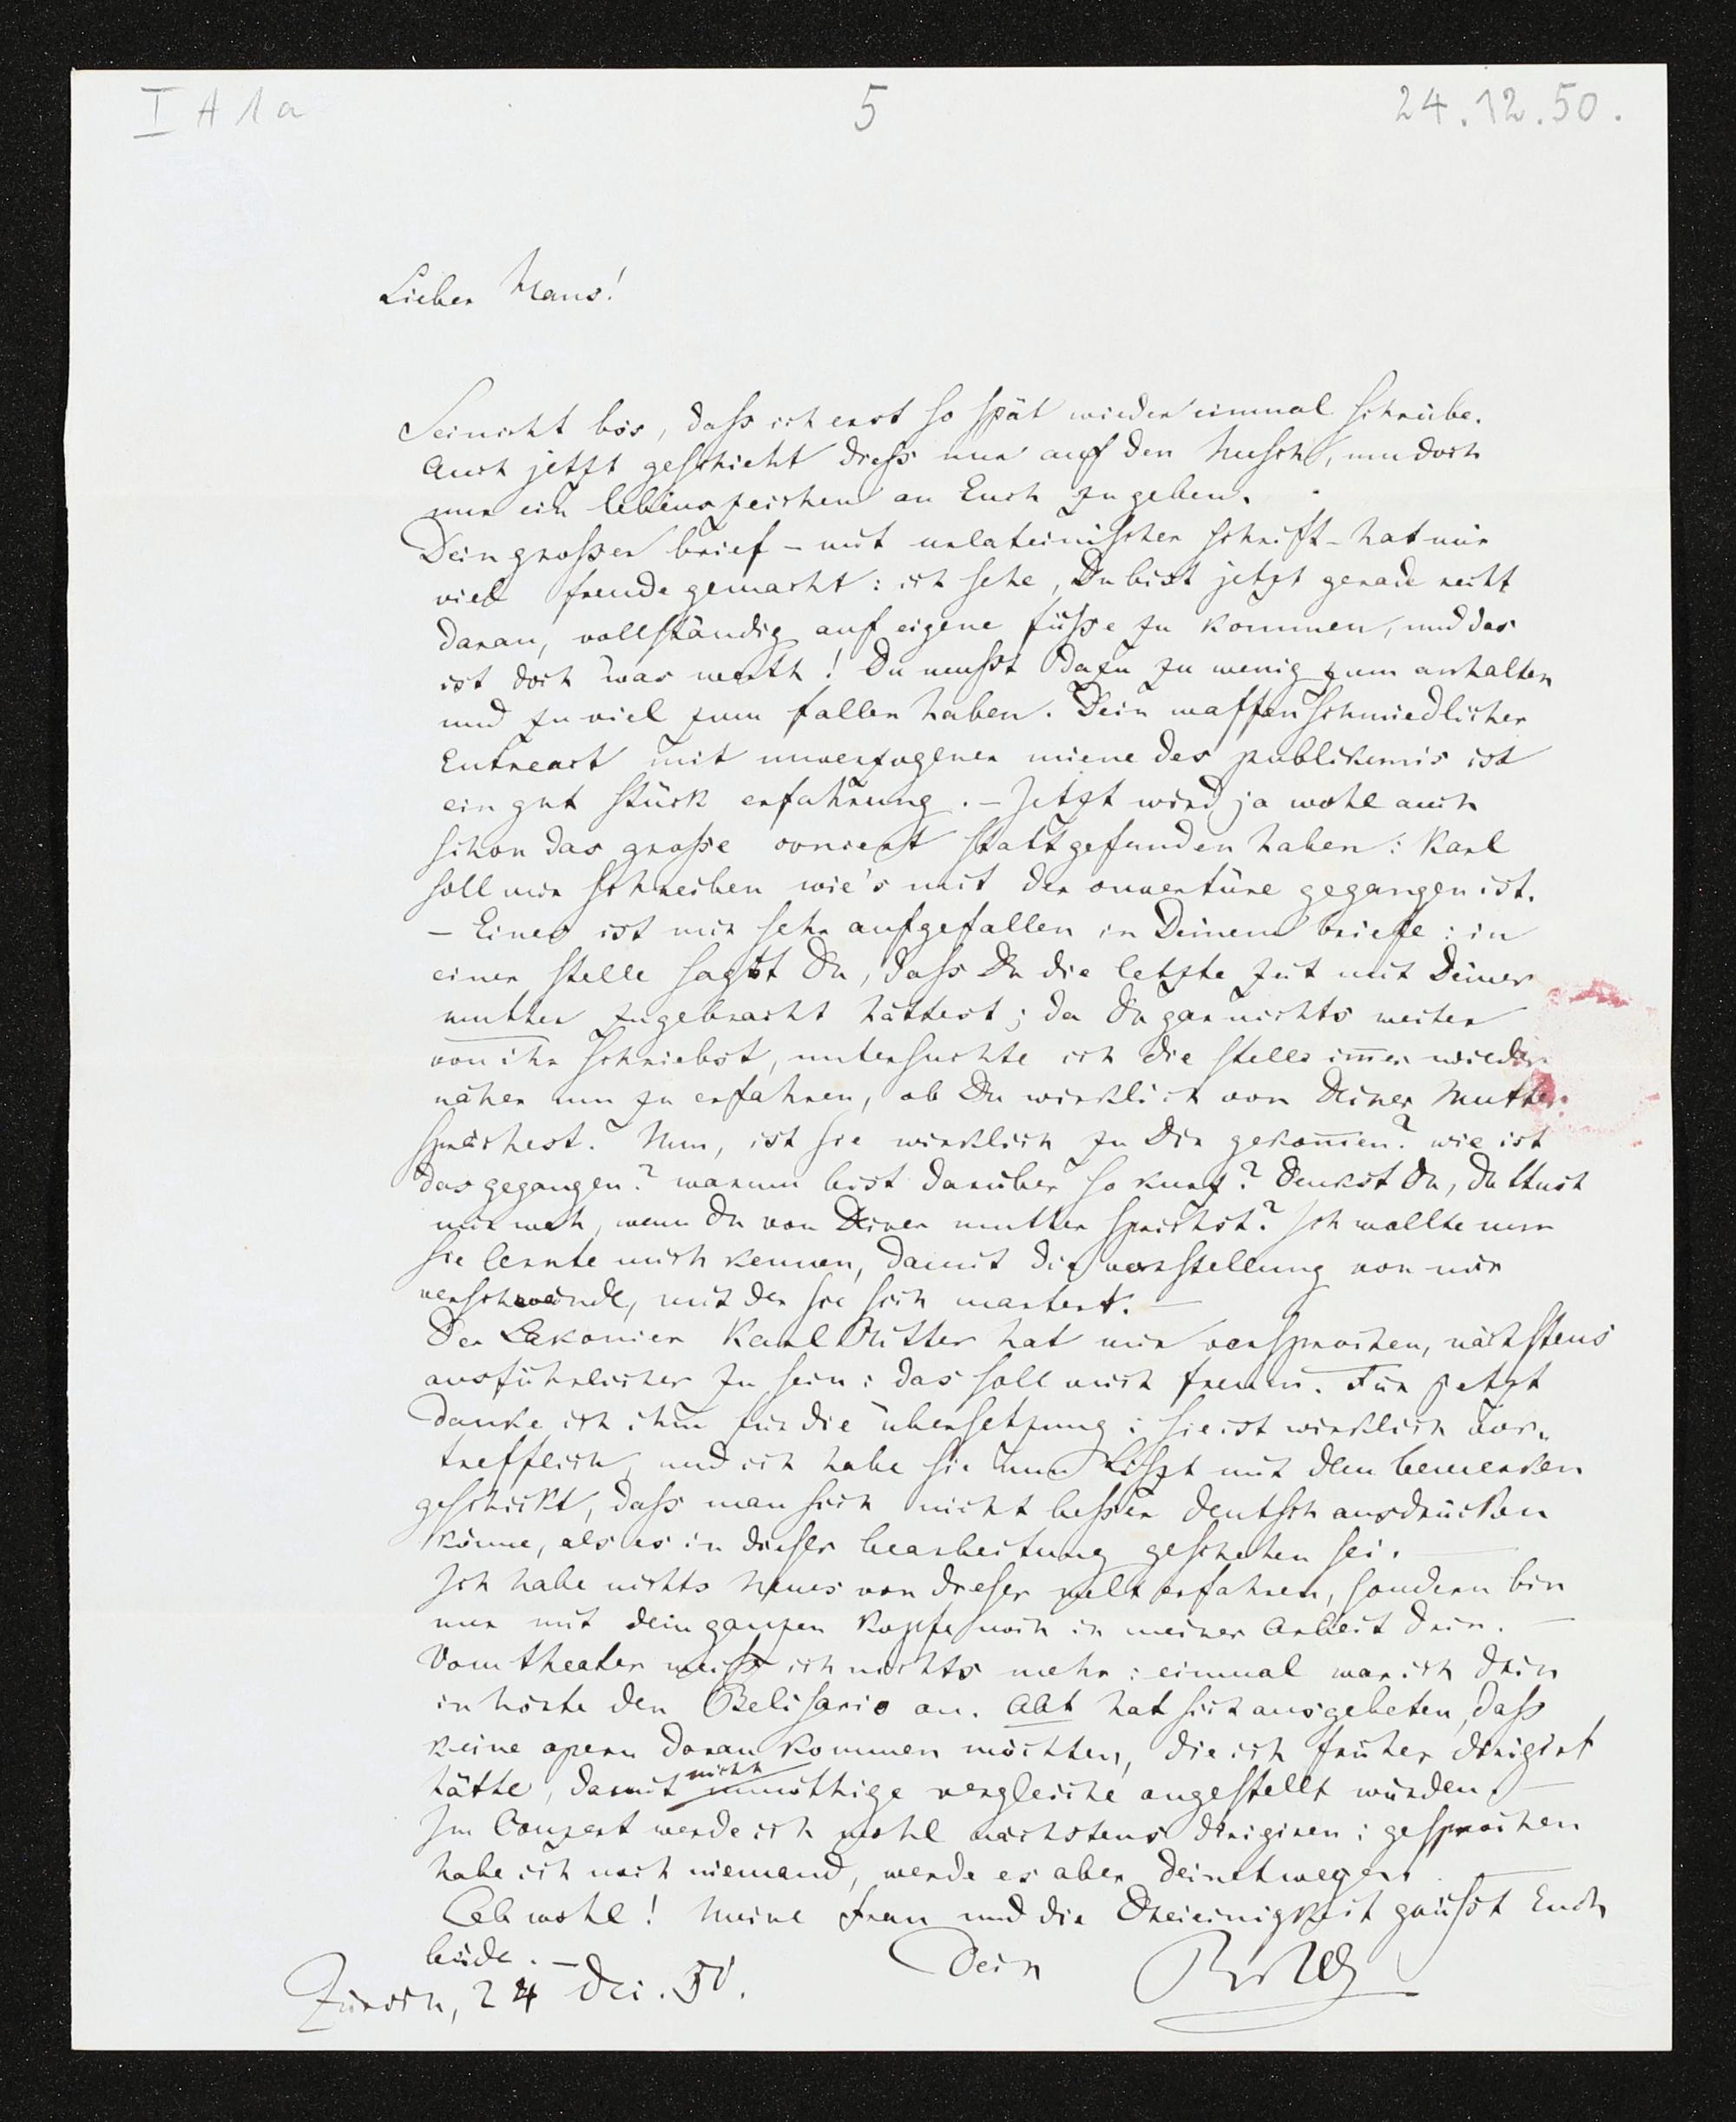 I A 1a
5
24.12.50.
Lieber Hans!
Sei nicht bös, dass ich erst so spät wieder einmal schreibe.
Auch jetzt geschieht diess nur auf den Husch, um doch
nur ein lebenszeichen an Euch zu geben.
Dein grosser brief – mit urlateinischer schrift – hat mir
viel freude gemacht: ich sehe, Du bist jetzt gerade recht
daran, vollständig auf eigene füsse zu kommen, und das
ist doch was werth! Du musst dazu zu wenig zum anhalten
und zu viel zum fallen haben. Dein waffenschmiedlicher
Entreact mit unverzogener miene des publikum's ist
ein gut stück erfahrung. – Jetzt wird ja wohl auch
schon das grosse concert stattgefunden haben: Karl
soll mir schreiben wie's mit der ouvertüre gegangen ist.
– Eines ist mir sehr aufgefallen in Deinem briefe: in
einer stelle sagst Du, dass Du die letzte zeit mit Deiner
mutter zugebracht hättest; da Du gar nichts weiter
von ihr schriebst, untersuchte ich die stelle immer wieder
näher um zu erfahren, ob Du wirklich von Deiner Mutter
sprächest. Nun, ist sie wirklich zu Dir gekommen? wie ist
das gegangen? warum bist darüber so kurz? Denkst Du, Du thust
mir weh, wenn Du von Deiner mutter sprichst? Ich wollte nur
sie lernte mich kennen, damit die vorstellung von mir
verschwände, mit der sie sich martert. –
Der Lakonier Karl Ritter hat mir versprochen, nächstens
ausführlicher zu sein: das soll mich freuen. Für jetzt
danke ich ihm für die übersetzung: sie ist wirklich vor„
trefflich, und ich habe sie nun Liszt mit dem bemerken
geschickt, dass man sich nicht besser deutsch ausdrücken
könne, als es in dieser bearbeitung geschehen sei. –
Ich habe nichts Neues von dieser welt erfahren, sondern bin
nur mit dem ganzen kopfe noch in meiner Arbeit drin. –
Vom theater weiss ich nichts mehr: einmal war ich drin
u hörte den Belisario an. Abt hat sich ausgebeten, dass
keine opern daran kommen möchten, die ich früher dirigirt
hätte, damit nicht unnöthige vergleiche angestellt würden. –
Im Conzert werde ich wohl nächstens dirigiren: gesprochen
habe ich noch niemand, werde es aber Deinetwegen.
Leb wohl! Meine frau und die Dreieinigkeit grüsst Euch
beide. –
Dein
RW
Zürich, 24 Dec. 50.